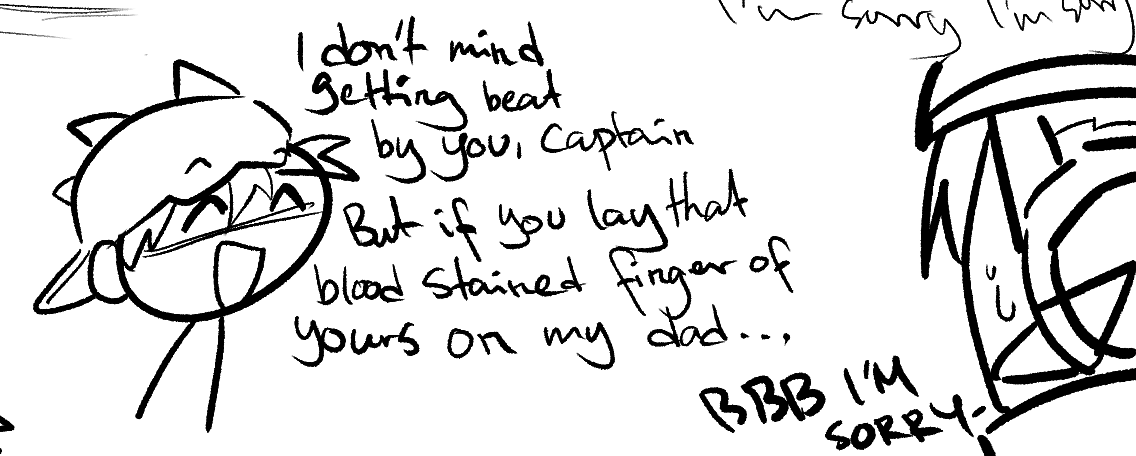 I'm sorry I'm sorry
I don't mind
getting beat
by you, Captain
But if you lay that
blood stained finger of
yours on my dad...,
BBB I'M
SORRY-